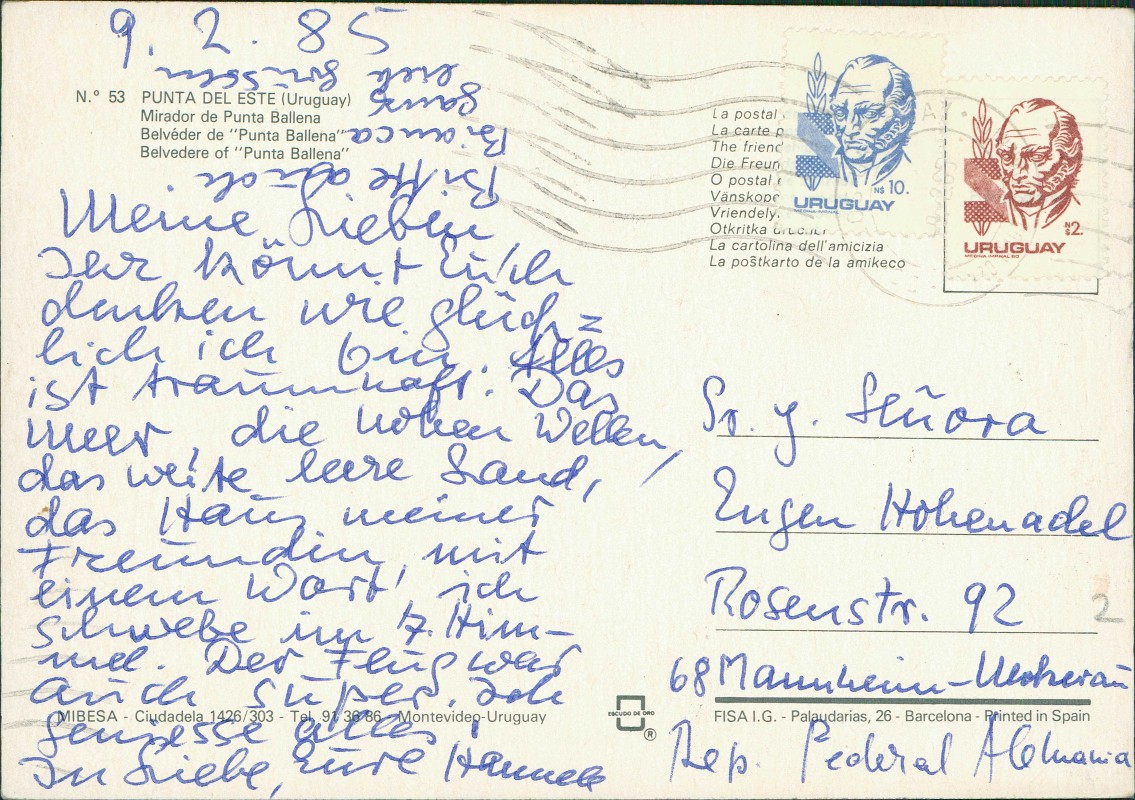 9. 2. 85
N.º 53 PUNTA DEL ESTE (Uruguay)
Mirador de Punta Ballena
Belvéder de "Punta Ballena"
Belvedere of "Punta Ballena"
Meine Lieben
Ihr könnt Euch
denken wie glück=
lich ich bin. Alles
ist traumhaft. Das
Meer, die hohen Wellen,
das weite leere Land,
das Haus meiner
Freundin, mit
einem Wort, ich
schwebe im 7. Him-
mel. Der Flug war
auch super. Ich
genesse alles!
In Liebe, Eure Hannele
Bitte auch
Bianca
ganz
lieb grüssen
MIBESA - Ciudadela 1426/303 - Tel. 91 36 86 - Montevideo-Uruguay
ESCUDO DE ORO
®
La postal
La carte p
The friend
Die Freun
O postal
Vänskope
Vriendely
Otkritka
La cartolina dell'amicizia
La poŝtkarto de la amikeco
N$ 10.
URUGUAY
N$ 2.
URUGUAY
Sr. y. Señora
Eugen Hohenadel
Rosenstr. 92
2
68 Mannheim-Neckarau
Rep. Federal Alemania
FISA I.G. - Palaudarias, 26 - Barcelona - Printed in Spain